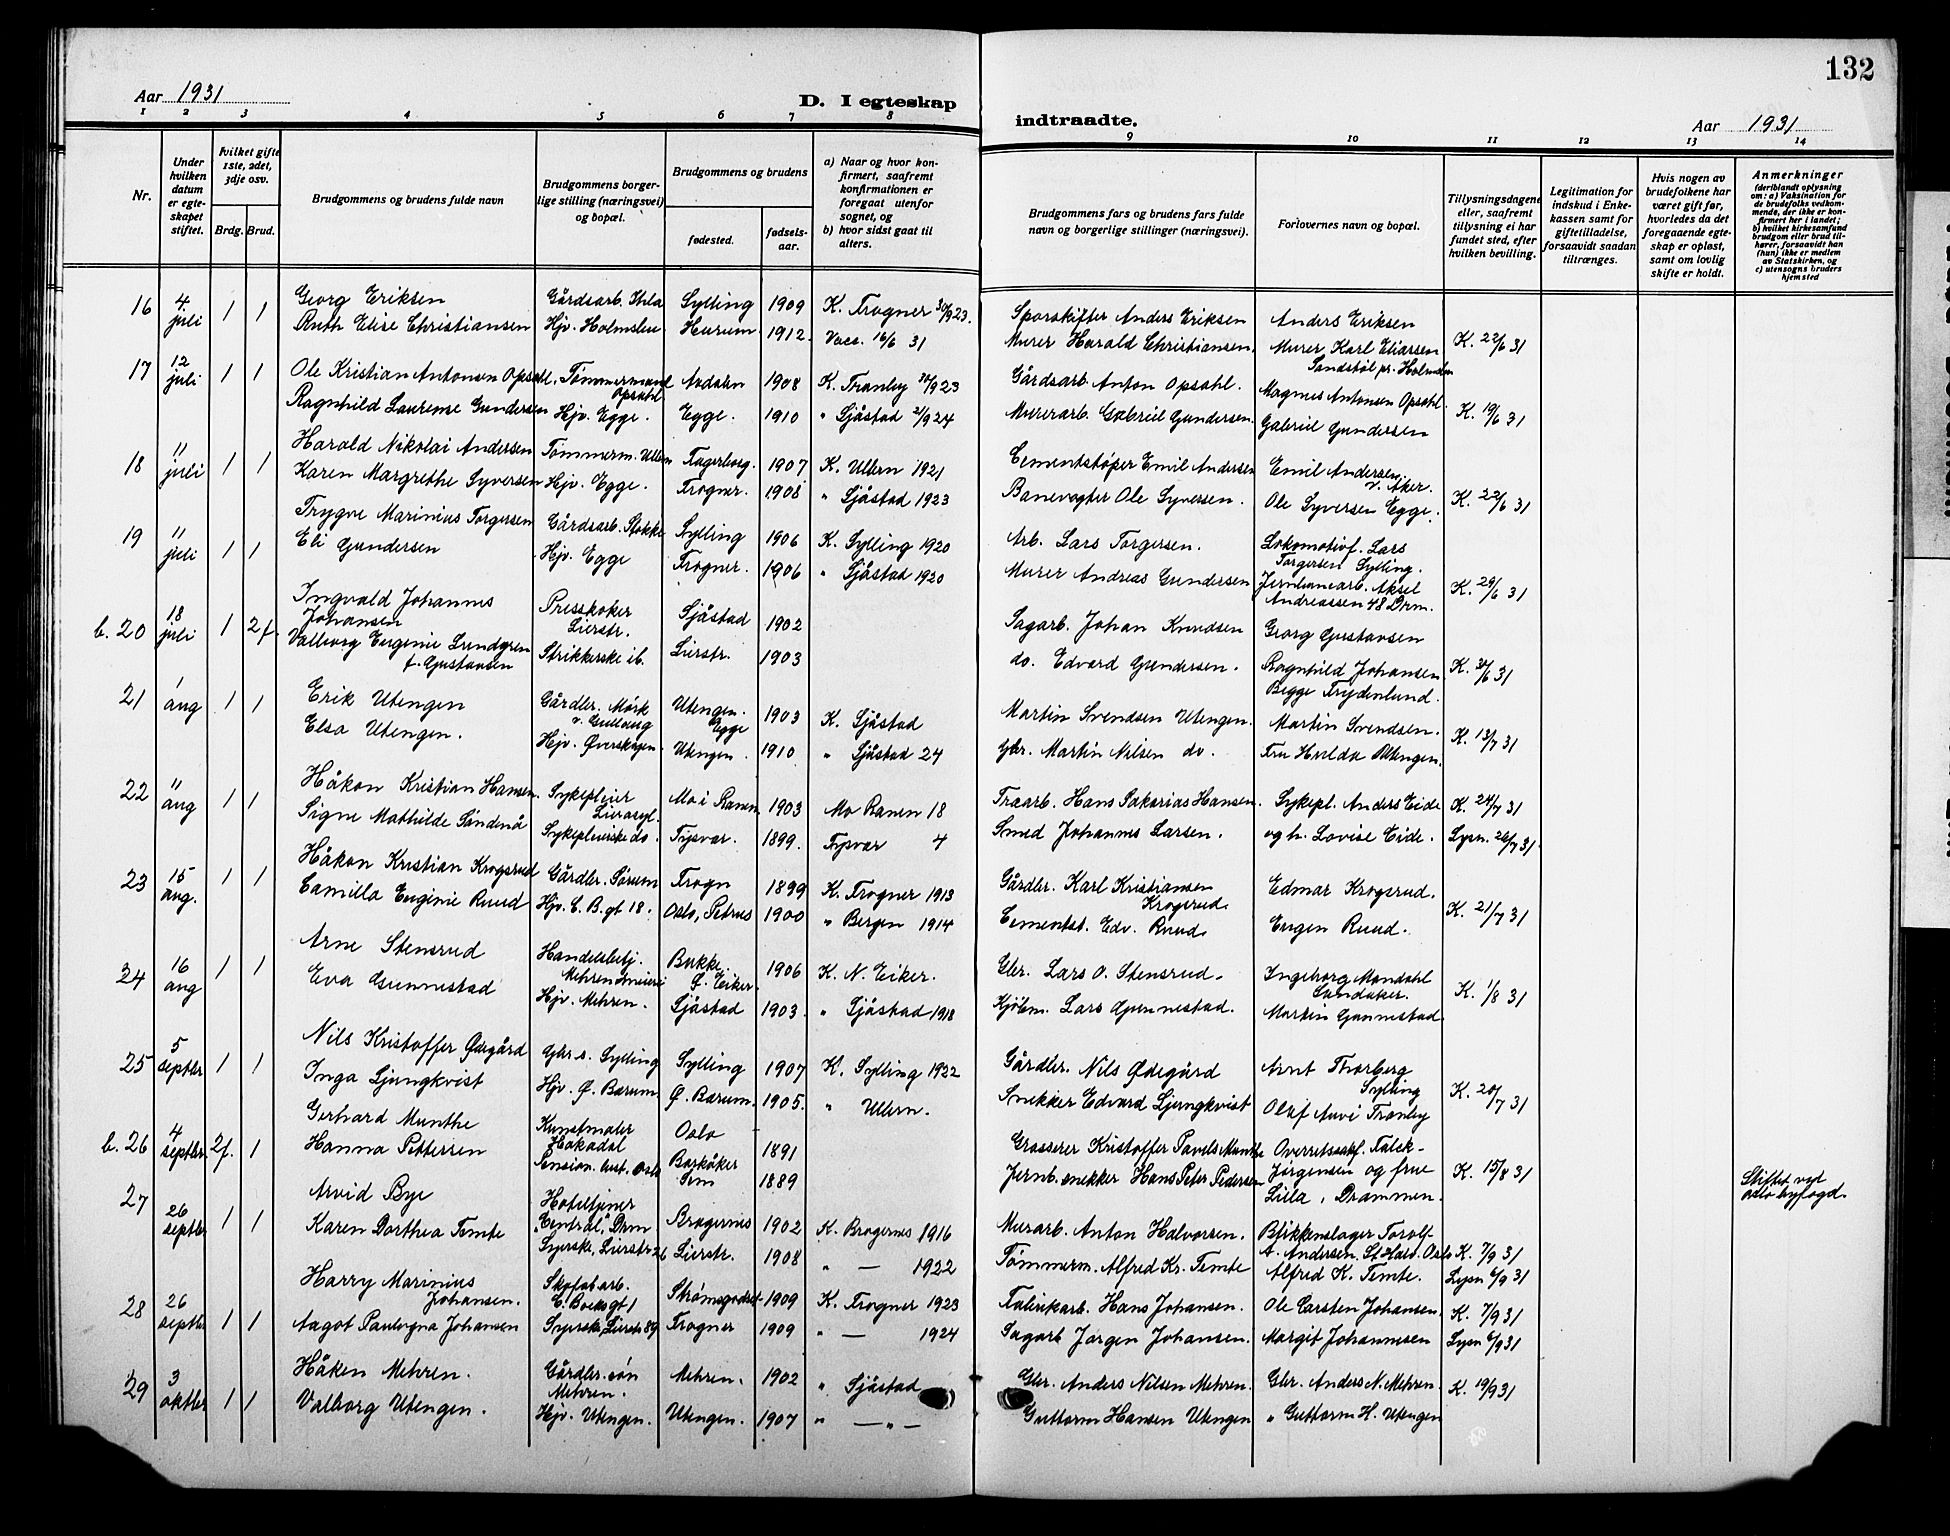 132
Aar 1931
D. I egteskap
indtraadte.
Aar 1931
1 2 3 4 5 6 7 8 9 10 11 12 13 14
Nr.
Under hvilken datum er egteskapet stiftet.
Hvilket gifte 1ste, 2det, 3dje osv.
Brdg. Brud.
Brudgommens og brudens fulde navn
Brudgommens borgerlige stilling (næringsvei) og bopæl.
Brudgommens og brudens
fødested.
fødselsaar.
a) Naar og hvor konfirmert, saafremt konfirmationen er foregaat utenfor sognet, og
b) hvor sidst gaat til alters.
Brudgommens fars og brudens fars fulde navn og borgerlige stillinger (næringsvei).
Forlovernes navn og bopæl.
Tillysningsdagene eller, saafremt tillysning ei har fundet sted, efter hvilken bevilling.
Legitimation for indskud i Enkekassen samt for giftetilladelse, forsaavidt saadan tiltrænges.
Hvis nogen av brudefolkene har været gift før, hvorledes da det foregaaende egteskap er opløst, samt om lovlig skifte er holdt.
Anmerkninger (deriblandt oplysning om: a) Vaksination for de brudefolks vedkommende, der ikke er konfirmert her i landet; b) hvilket kirkesamfund brudgom eller brud tilhører, forsaavidt han (hun) ikke er medlem av Statskirken, og c) utensogns bruders hjemsted
16 4 juli 1 1 Georg Eriksen Gårdsarb. Sylling 1909 K. Frogner 30/9 23. Sporskifter Anders Eriksen Anders Eriksen K. 22/6 31
Ruth Elise Christiansen Hjv. Holmsbu Hurum 1912 Vacc. 16/6 31 Murer Harald Christiansen. Murer Karl Eliassen
17 12 juli 1 1 Ole Kristian Antonsen Opsahl. Tømmermand Opsahl 1908 K. Tranby 30/9 23 Gårdsarb. Anton Opsahl. Magnus Antonsen Opsahl. K. 19/6 31
Ragnhild Laurense Gundersen Hjv. Egge. Egge. 1910 " Sjåstad 21/9 24 Murerarb. Gabriel Gundersen. Gabriel Gundersen
18 11 juli 1 1 Harald Nikolai Andersen Tømmerm. Ullern Fagerborg. 1907 K. Ullern 1921 Cementstøper Emil Andersen Emil Andersen v. Aker. K. 22/6 31
Karen Margrethe Syversen Hjv. Egge. Frogner. 1908 " Sjåstad 1923 Banevogter Ole Syversen. Ole Syversen Egge.
19 11 juli 1 1 Trygve Marinius Torgersen Gårdsarb. Stokke Sylling 1906 K. Sylling 1920 Arb. Lars Torgersen. Lokomotivf. Lars Torgersen Sylling. K. 29/6 31
Eli Gundersen Hjv. Egge Frogner. 1906 " Sjåstad 1920 Murer Andreas Gundersen Jernbanearb. Aksel Andreassen 48 Drm.
b. 20 18 juli 1 2f. Ingvald Johannes Johansen Presskoker Lierstr. Sjåstad 1902 Sagarb. Johan Knudsen Georg Gustavsen K. 30/6 31
Valborg Eugenie Lundgren f. Gustavsen Strikkerske ib. Lierstr. 1903 do. Edvard Gundersen. Ragnhild Johansen Begge Frydenlund.
21 1 aug 1 1 Erik Utengen Gårdbr. Mørk Utengen. Egge 1903 K. Sjåstad Martin Svendsen Utengen. Martin Svendsen. K. 13/7 31
Elsa Utengen. Hjv. Øverskogen. Utengen. 1910 " Sjåstad 24 Gbr. Martin Nilsen do. Fru Hulda Utengen.
22 11 aug 1 1 Håkon Kristian Hansen. Sykepleier Lierasyl. Mo i Ranen. 1903 Mo Ranen 18 Hans Sakarias Hansen. Sykepl. Anders Eide K. 24/7 31
Signe Mathilde Sandnå Sykepleierske do. Tysvær. 1899. Tysvær Smed Johannes Larsen. og h. Lovise Eide. Lysn. 26/7 31.
23 15 aug. 1 1 Håkon Kristian Krogsrud Gårdbr. Sørum Frogn 1899 K. Frogner 1913 Gårdbr. Karl Kristiansen Krogsrud. Edmar Krogsrud. K. 21/7 31
Camilla Eugenie Ruud Hjv. C. B. gt 18. Oslo, Petrus 1900 " Bergen 1914 Cementst. Edv. Ruud. Eugen Ruud.
24 16 aug 1 1 Arne Stensrud Handelsbetj. Mehren Ø. Eiker. 1906 K. N. Eiker. Gbr. Lars O. Stensrud. Ingeborg Mandahl Sandaker. K. 1/8 31
Eva Gunnestad Hjv. Mehren. Sjåstad 1903. " Sjåstad 1918 Kjøbm. Lars Gunnestad. Martin Gunnestad
25 5 septbr. 1 1 Nils Kristoffer Ødegård Gbr s. Sylling Sylling 1907 K. Sylling 1922 Gårdbr. Nils Ødegård Arnt Thorberg Sylling K. 20/7 31
Inga Ljungkvist Hjv. Ø. Bærum Ø. Bærum. 1905. " Ullern. Snekker Edvard Ljungkvist Olaf Tranby
b. 26 4 septbr. 2f. 1 Gerhard Munthe Kunstmaler Hakadal Oslo 1891 Grosserer Kristoffer Pavels Munthe Overretssakf. Falck- K. 15/8 31
Hanna Pettersen Pension. best. Oslo Barkåker Sem 1889 Jernb. snekker Hans Peter Pedersen Jørgensen og frue Lilla, Drammen. Stiftet ved Oslo byfogd.
27 26 septbr 1 1 Arvid Bye Hotelltjener "Central", Drm Bragernes 1902 K. Bragernes 1916 Murarb. Anton Halvorsen. Blikkenslager Torolf A. Andersen. Oslo K. 7/9 31
Karen Dorthea Temte Syerske, Lierstr 26 Lierstr. 1908 " — 1922 Tømmerm. Alfred Kr. Temte Alfred K. Temte. Lysn 6/9 31
28 26 septbr 1 1 Harry Marinius Johansen. Skofabarb. Strømsgodset 1909 K. Frogner 1923 Fabrikarb. Hans Johansen. Ole Carsten Johansen K. 7/9 31
Aagot Paulogna Johansen Syerske, Lierstr 89 Frogner 1909 " — 1924 Sagarb Jørgen Johansen. Margit Johannesen Lysn 6/9 31
29 3 oktbr 1 1 Håken Mehren. Gårdbr. søn Mehren. Mehren. 1902 " Sjåstad Gbr. Anders Nilsen Mehren. Gbr. Anders N. Mehren. K. 19/9 31
Valborg Utengen. Hjv. Utengen. Utengen. 1907 " — " — Guttorm Hansen Utengen " Guttorm H. Utengen